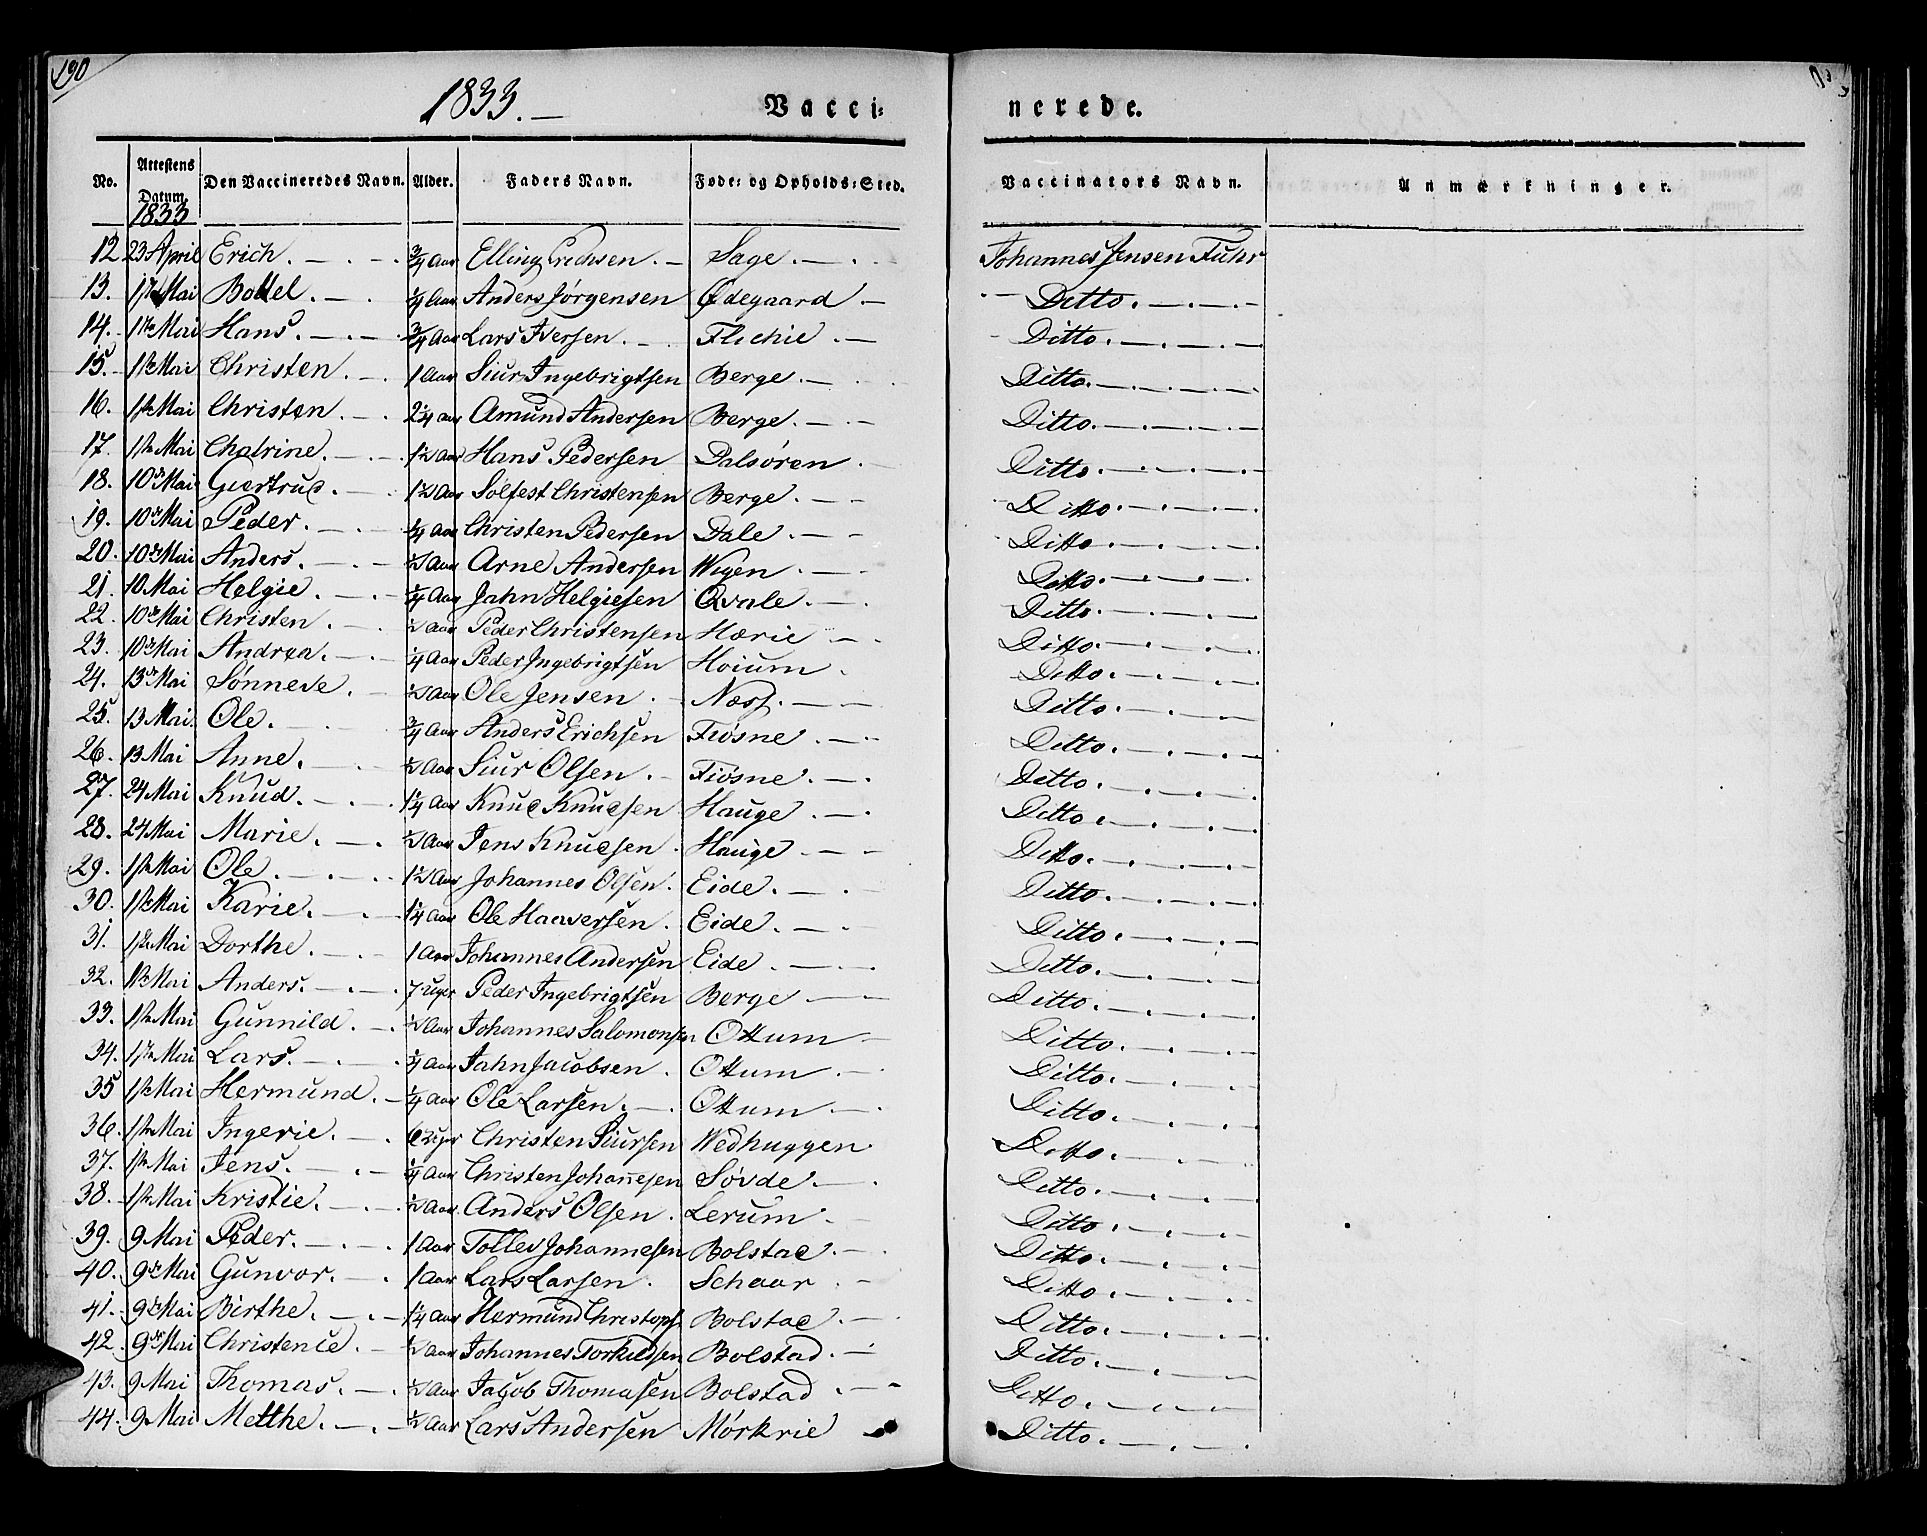 190
1833. —
Vacci=
nerede.
No. Attestens Datum. Den Vaccineredes Navn. Alder. Faders Navn. Føde= og Opholds=Sted. Vaccinators Navn. Anmærkninger.
1833
12 23 April Erich. 3/4 Aar Elling Erichsen. Sage. Johannes Jensen Fuhr
13. 1ste Mai Bottel. 1/4 Aar Anders Jørgensen Ødegaard Ditto.
14. 1ste Mai Hans. 3/4 Aar Lars Iversen. Flichie. Ditto.
15. 1ste Mai Christen. 1 Aar Siur Ingebrigtsen Berge. Ditto.
16. 1ste Mai Christen. 2 1/4 Aar Amund Andersen Berge. Ditto.
17. 1ste Mai Chatrine. 1 1/2 Aar Hans Pedersen Dalsøren. Ditto.
18. 10de Mai Giertrud. 1 1/2 Aar Solfest Christensen Berge. Ditto.
19. 10de Mai Peder. 1/4 Aar Christen Pedersen Dale. Ditto.
20. 10de Mai Anders. 1/2 Aar Arne Andersen Wigen. Ditto.
21. 10 Mai Helgie. 1/4 Aar Jahn Helgiesen Qvale. Ditto.
22. 10de Mai Christen. 1/2 Aar Peder Christensen Hærie Ditto.
23. 10de Mai Andrea. 1/4 Aar Peder Ingebrigtsen Hoium. Ditto.
24. 13de Mai Sønneve. 1/2 Aar Ole Jensen. Næss. Ditto.
25. 13 Mai. Ole. 3/4 Aar Anders Erichsen Fiøsne. Ditto.
26. 13 Mai Anne. 1/2 Aar Siur Olsen. Fiøsne. Ditto.
27. 24 Mai Knud. 1 1/4 Aar Knud Knudsen Hauge. Ditto.
28. 24 Mai Marie. 1/2 Aar Jens Knudsen. Hauge. Ditto.
29. 1ste Mai Ole. 1 1/2 Aar Johannes Olsen. Eide. Ditto.
30. 1ste Mai Karie. 1 1/4 Aar Ole Haaversen. Eide. Ditto.
31. 1ste Mai Dorthe. 1 Aar Johannes Andersen Eide. Ditto.
32. 1ste Mai Anders. 7 Uger Peder Ingebrigtsen Berge Ditto.
33. 1ste Mai Gunnild. 1/2 Aar Johannes Salomonsen Ottum Ditto.
34. 1ste Mai Lars. 1/4 Aar Jahn Jacobsen. Ottum. Ditto.
35 1ste Mai Hermund. 1/4 Aar Ole Larsen. Ottum. Ditto.
36. 1ste Mai Ingerie. 6 Uger Christen Siursen Wedhuggen. Ditto.
37. 1ste Mai Jens. 1/4 Aar Christen Johannesen Søvde. Ditto.
38. 1ste Mai Kristie. 1/2 Aar. Anders Olsen. Lerum. Ditto.
39. 9 Mai Peder. 1 Aar Tollev Johannesen Bolstad. Ditto.
40. 9de Mai Gunvor. 1 Aar Lars Larsen. Schaar. Ditto.
41. 9de Mai Birthe. 1 1/4 Aar Hermund Christoph. Bolstad. Ditto.
42. 9de Mai Christence. 1/2 Aar Johannes Torkildsen Bolstad. Ditto.
43. 9 Mai Thomas. 1/2 Aar Jacob Thomasen Bolstad. Ditto.
44. 9 Mai Metthe. 1/2 Aar Lars Andersen Mørkrie Ditto.